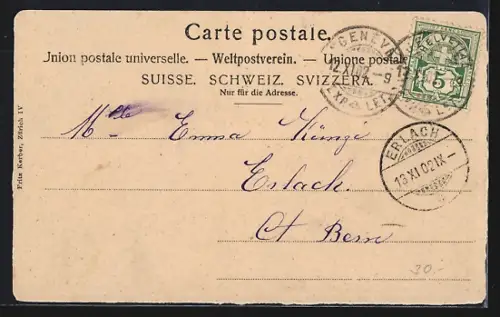 Carte postale.
Union postale universelle. — Weltpostverein. — Unione postale
SUISSE. SCHWEIZ. SVIZZERA.
Nur für die Adresse.
GENÈVE
12.XI.02.-9
EXP. LET.
HELVETIA
5
Mlle Emma Künzi
Erlach.
Ct Bern
ERLACH
13.XI.02.IX-
Fritz Karber, Zürich IV
30.-